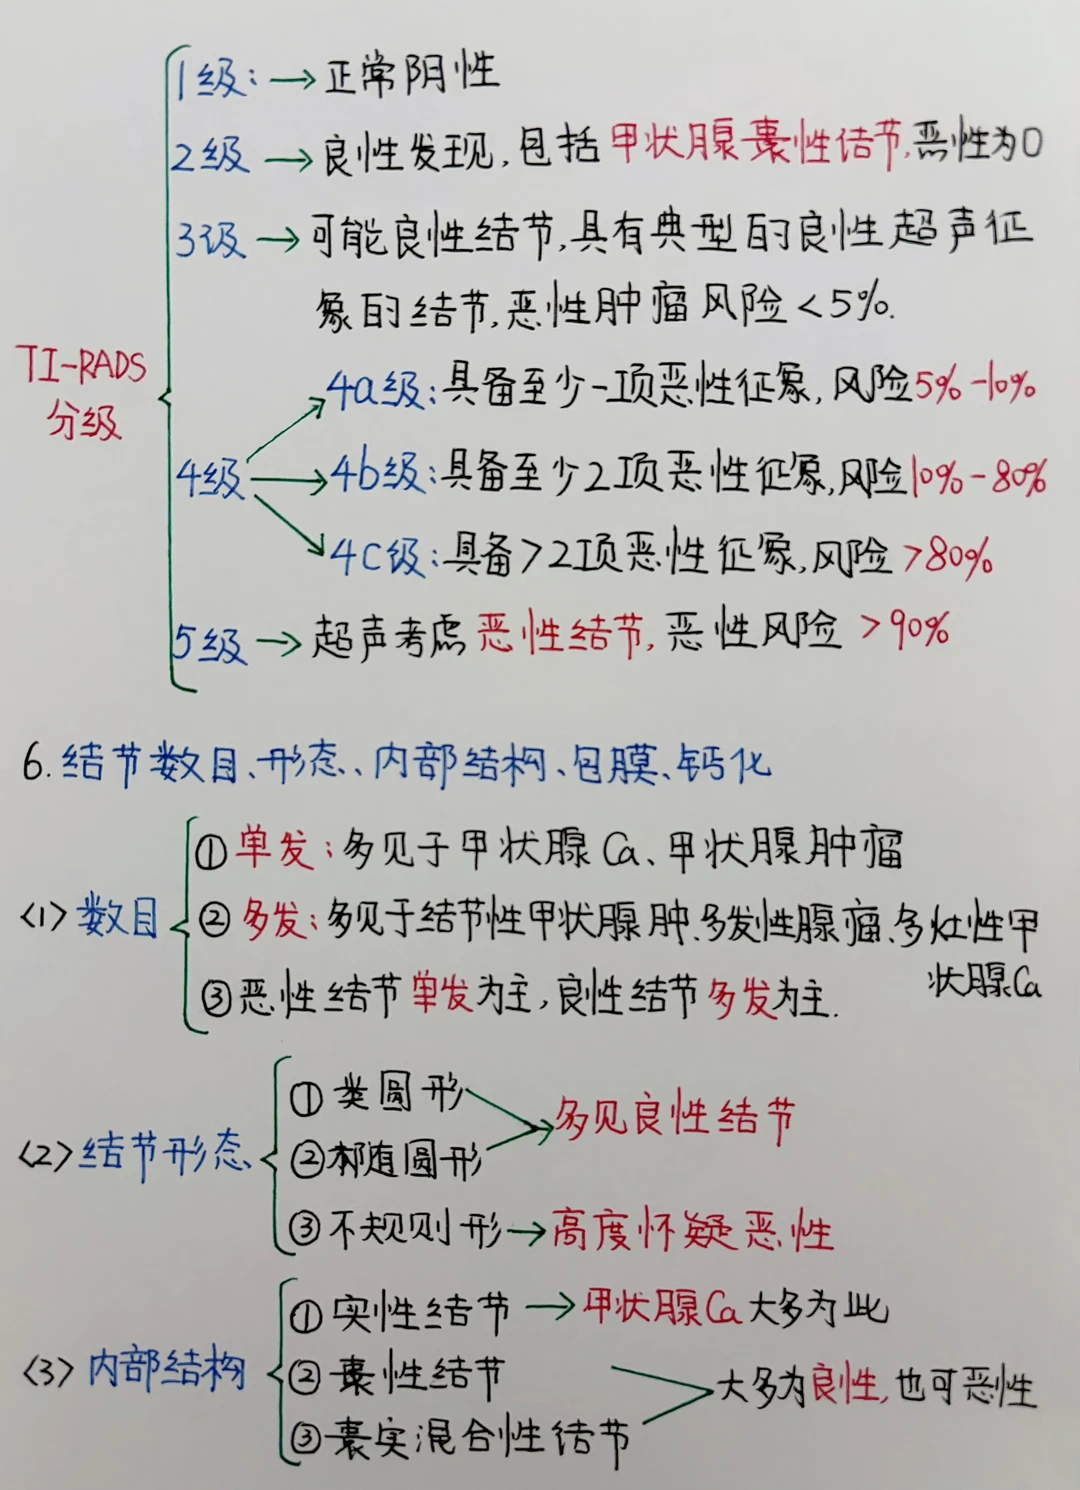 1级：→正常阴性
2级→良性发现，包括甲状腺囊性结节，恶性为0
3级→可能良性结节，具有典型的良性超声征
象的结节，恶性肿瘤风险<5%.
TI-RADS
分级
4a级：具备至少一项恶性征象，风险5%-10%
4级
4b级：具备至少2项恶性征象，风险10%-80%
4c级：具备>2项恶性征象，风险>80%
5级→超声考虑恶性结节，恶性风险>90%
6.结节数目、形态、内部结构、包膜、钙化
<1>数目
①单发：多见于甲状腺Ca、甲状腺肿瘤
②多发：多见于结节性甲状腺肿、多发性腺瘤、多灶性甲
状腺Ca
③恶性结节单发为主，良性结节多发为主.
<2>结节形态
①类圆形
②椭圆形
→多见良性结节
③不规则形→高度怀疑恶性
<3>内部结构
①实性结节→甲状腺Ca大多为此
②囊性结节
③囊实混合性结节
大多为良性，也可恶性